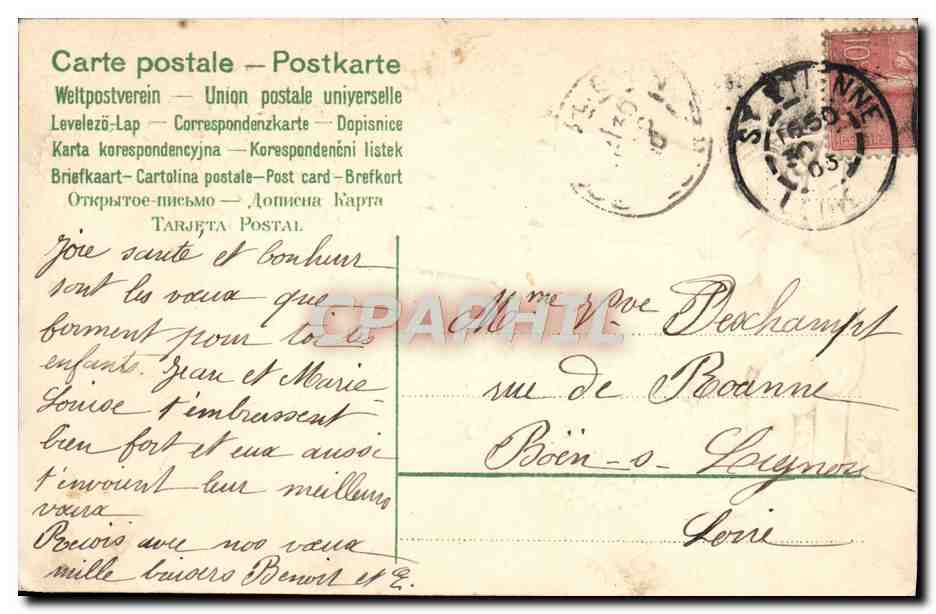 Carte postale — Postkarte
Weltpostverein — Union postale universelle
Levelező-Lap — Correspondenzkarte — Dopisnice
Karta korespondencyjna — Korespondenční listek
Briefkaart — Cartolina postale — Post card — Brefkort
Открытое-письмо — Дописна Карта
TARJETA POSTAL
ST ETIENNE
10
03
Joie santé et bonheur
sont les vœux que
forment pour toi tes
enfants. Jean et Marie-
Louise t'embrassent
bien fort et eux aussi
t'envoient leur meilleurs
vœux
Reçois avec nos vœux
mille baisers Benoit et E.
CPAPHIL
Mme Vve Deschampt
rue de Roanne
Boën-s-Lignon
Loire